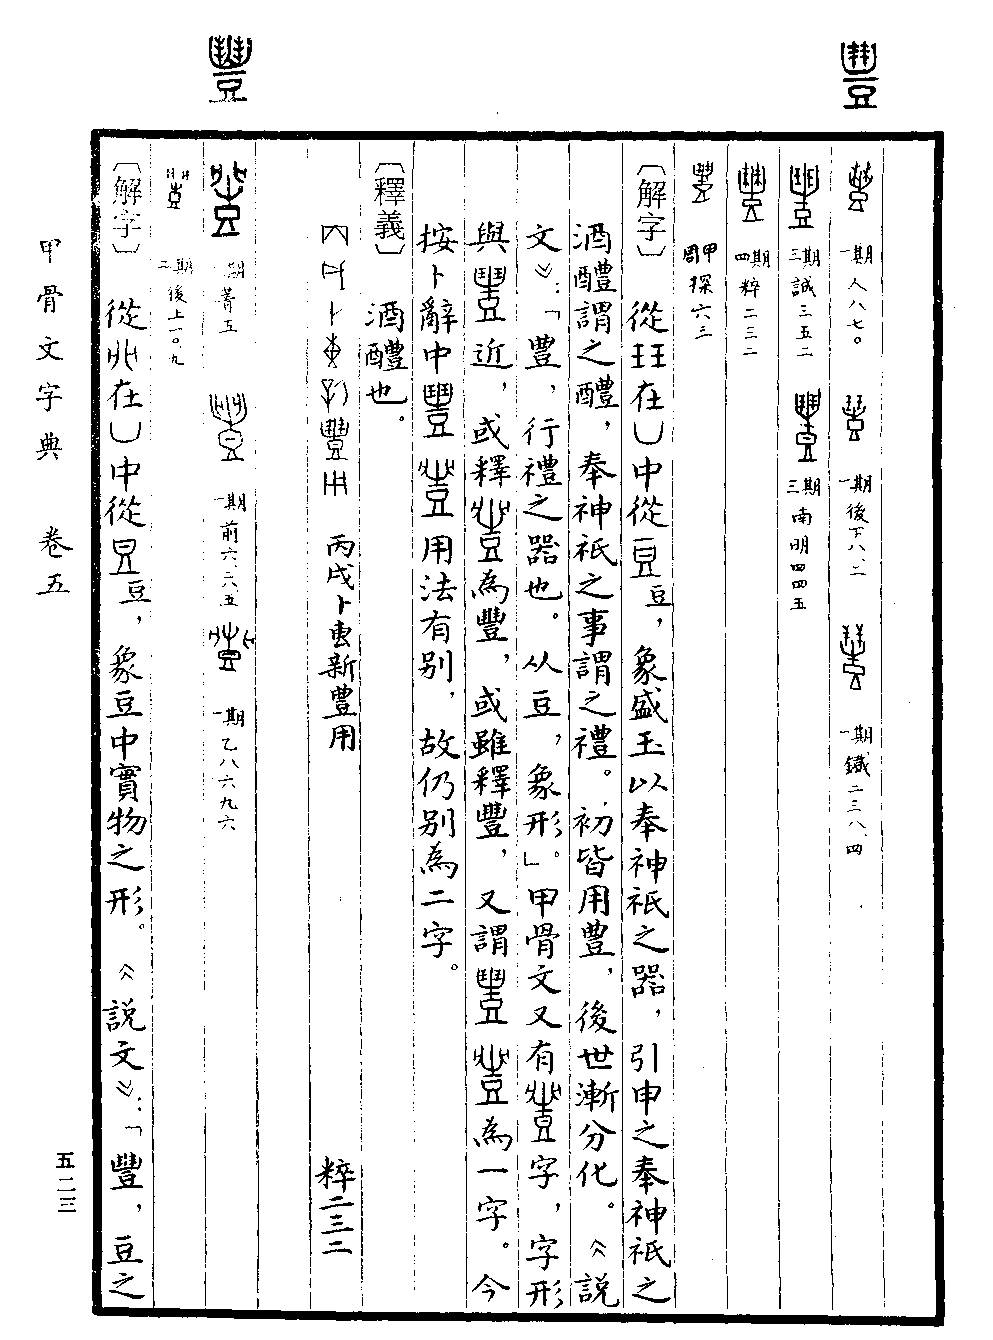 豊
一期 人八七〇 一期 後下八·二 一期 鐵二三八·四
三期 誠三五二 三期 南明四四五
四期 粹二三二
周甲 探六三
〔解字〕從玨在凵中從豆,象盛玉以奉神祇之器,引申之奉神祇之
酒醴謂之醴,奉神祇之事謂之禮。初皆用豊,後世漸分化。《說
文》:「豊,行禮之器也。从豆,象形。」甲骨文又有字,字形
與近,或釋為豐,或雖釋豐,又謂為一字。今
按卜辭中用法有別,故仍別為二字。
〔釋義〕酒醴也。
丙戌卜叀新豊用 粹二三二
豐
一期 菁五 一期 前六·六·五 一期 乙八六九六
二期 後上一〇·九
〔解字〕從在凵中從豆,象豆中實物之形。《說文》:「豐,豆之
甲骨文字典 卷五
五二三